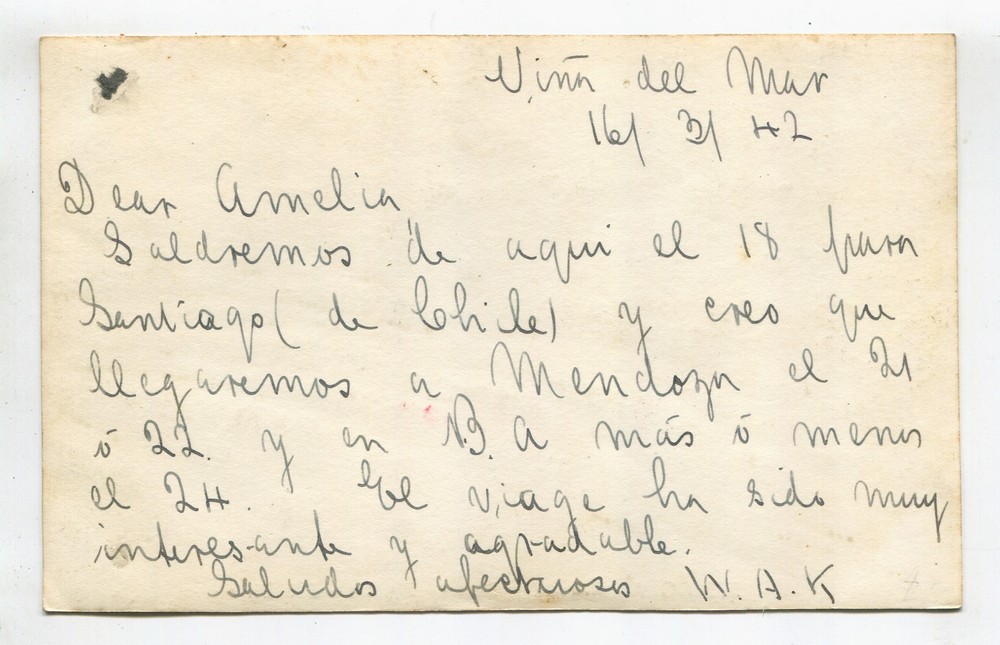 Viña del Mar
16/ 3/ 42
Dear Amelia,
Saldremos de aqui el 18 para
Santiago ( de Chile) y creo que
llegaremos a Mendoza el 21
ó 22 y en B. A más ó menos
el 24. El viage ha sido muy
interesante y agradable.
Saludos afectuosos W. A. K